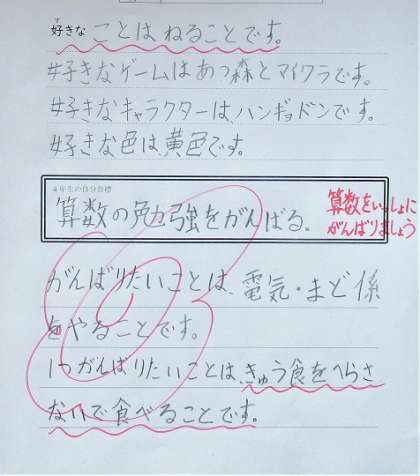 好きな ことは ねることです。
好きなゲームはあつ森とマイクラです。
好きなキャラクターは、ハンギョドンです。
好きな色は、黄色です。
4年生の自分目標
算数の勉強をがんばる。
算数をいっしょに
がんばりましょう
がんばりたいことは、電気・まど係
をやることです。
1つがんばりたいことは、きゅう食をへらさ
ないで食べることです。